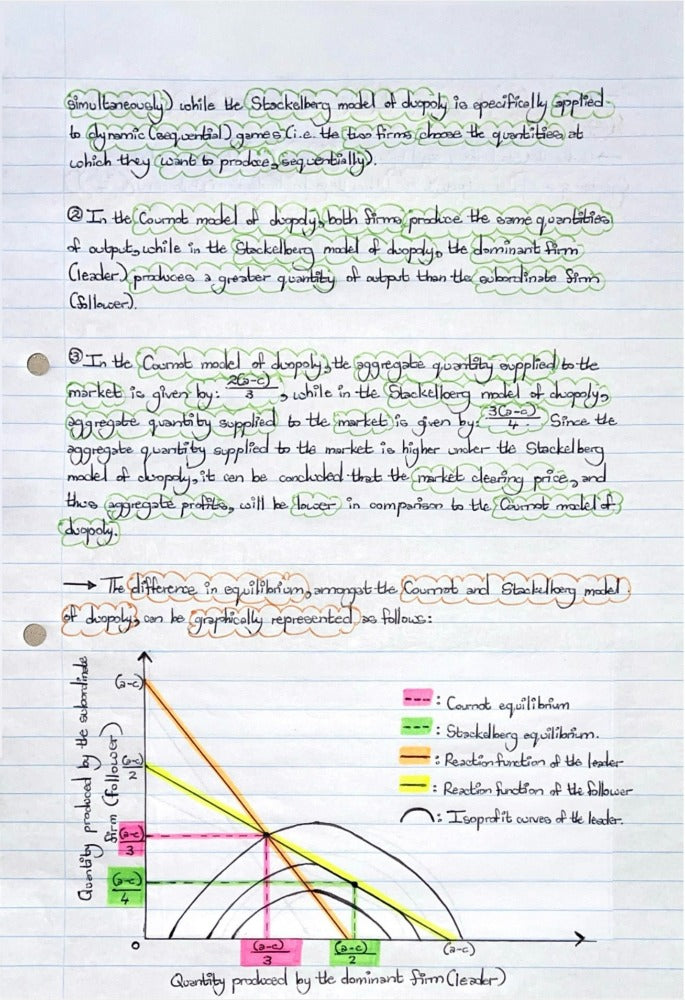 simultaneously) while the Stackelberg model of duopoly is specifically applied
to dynamic (sequential) games (i.e. the two firms choose the quantities at
which they want to produce, sequentially).
② In the Cournot model of duopoly, both firms produce the same quantities
of output, while in the Stackelberg model of duopoly, the dominant firm
(leader) produces a greater quantity of output than the subordinate firm
(follower).
③ In the Cournot model of duopoly, the aggregate quantity supplied to the
market is given by: 2(a-c)/3, while in the Stackelberg model of duopoly,
aggregate quantity supplied to the market is given by: 3(a-c)/4. Since the
aggregate quantity supplied to the market is higher under the Stackelberg
model of duopoly, it can be concluded that the market clearing price, and
thus aggregate profits, will be lower in comparison to the Cournot model of
duopoly.
→ The difference in equilibrium, amongst the Cournot and Stackelberg model
of duopoly, can be graphically represented as follows:
Quantity produced by the subordinate
firm (follower)
(a-c)
(a-c)/2
(a-c)/3
(a-c)/4
: Cournot equilibrium
: Stackelberg equilibrium.
: Reaction function of the leader
: Reaction function of the follower
: Isoprofit curves of the leader.
0
(a-c)/3
(a-c)/2
(a-c)
Quantity produced by the dominant firm (leader)